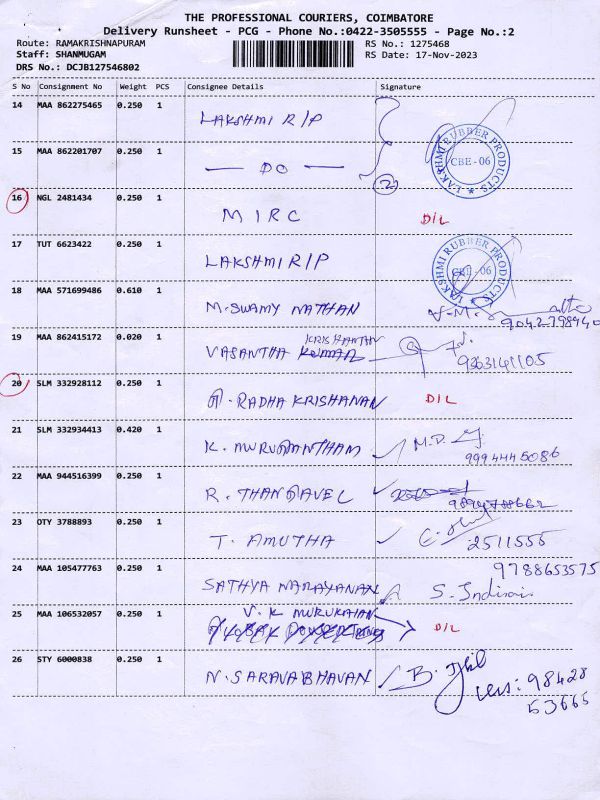 THE PROFESSIONAL COURIERS, COIMBATORE
Delivery Runsheet - PCG - Phone No.:0422-3505555 - Page No.:2
Route: RAMAKRISHNAPURAM
RS No.: 1275468
Staff: SHANMUGAM
RS Date: 17-Nov-2023
DRS No.: DCJB127546802
S No Consignment No Weight PCS Consignee Details Signature
14 MAA 862275465 0.250 1 LAKSHMI R/P
15 MAA 862201707 0.250 1 — DO — 2
LAKSHMI RUBBER PRODUCTS
CBE - 06
16 NGL 2481434 0.250 1 MIRC D/L
17 TUT 6623422 0.250 1 LAKSHMI R/P
LAKSHMI RUBBER PRODUCTS
CBE - 06
18 MAA 571699486 0.610 1 M. SWAMY NATHAN
19 MAA 862415172 0.020 1 VASANTHA 9363141105
20 SLM 332928112 0.250 1 RADHA KRISHANAN D/L
21 SLM 332934413 0.420 1 K. MURUGANTHAM M.D.
9994445086
22 MAA 944516399 0.250 1 R. THANGAVEL
23 OTY 3788893 0.250 1 T. AMUTHA 2511555
24 MAA 105477763 0.250 1 SATHYA NARAYANAN 9788653575
25 MAA 106532057 0.250 1 V. K D/L
26 STY 6000838 0.250 1 N. SARAVABHAVAN B.
98428
53665